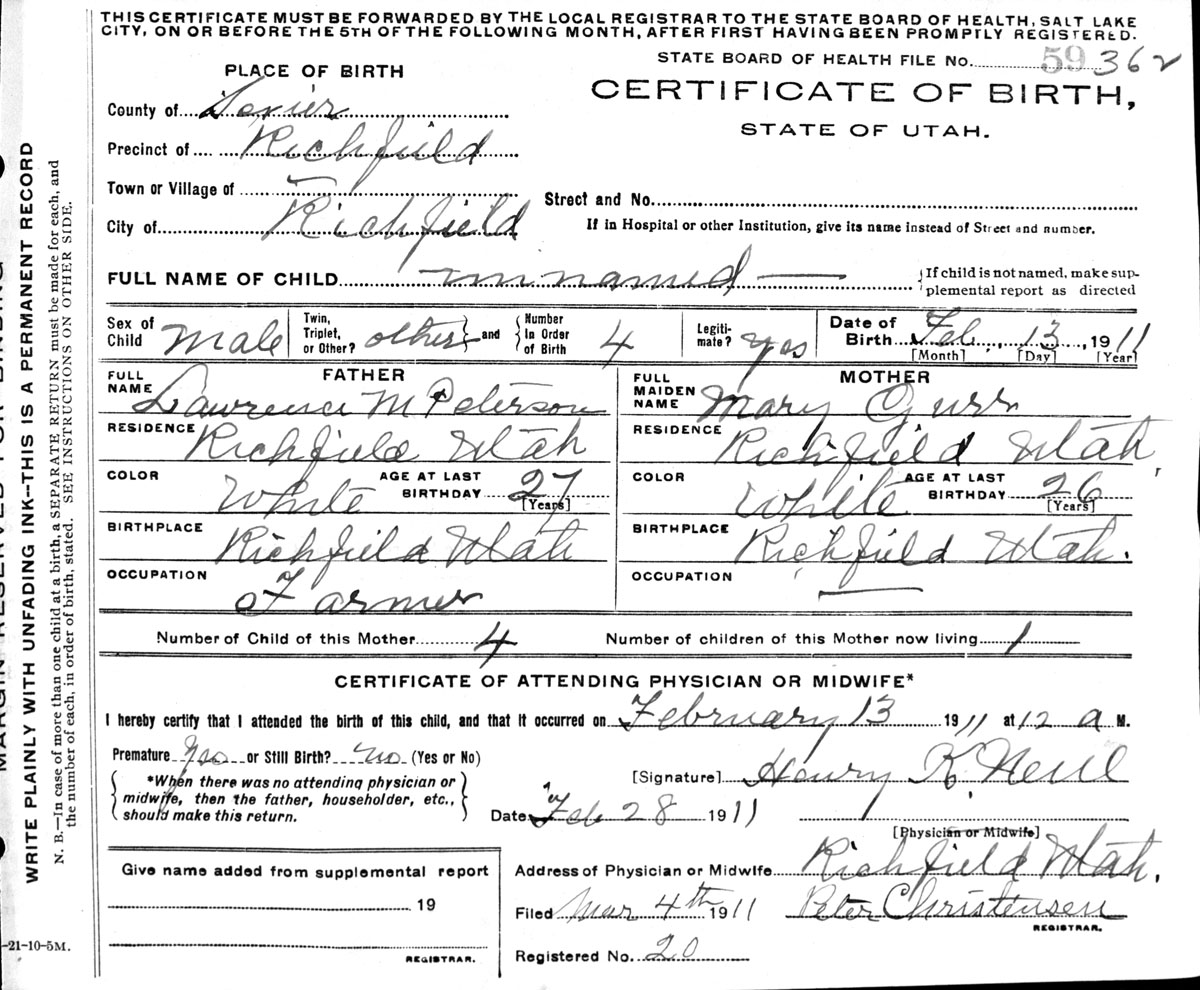 THIS CERTIFICATE MUST BE FORWARDED BY THE LOCAL REGISTRAR TO THE STATE BOARD OF HEALTH, SALT LAKE
CITY, ON OR BEFORE THE 5TH OF THE FOLLOWING MONTH, AFTER FIRST HAVING BEEN PROMPTLY REGISTERED.
STATE BOARD OF HEALTH FILE No. 59 362
PLACE OF BIRTH
CERTIFICATE OF BIRTH,
STATE OF UTAH.
County of Sevier
Precinct of Richfield
Town or Village of
Street and No.
City of Richfield
If in Hospital or other Institution, give its name instead of Street and number.
FULL NAME OF CHILD unnamed
If child is not named, make sup-
plemental report as directed
Sex of Child Male
Twin, Triplet, or Other? other and Number in Order of Birth 4
Legiti-mate? Yes
Date of Birth Feb. 13, 1911
[Month] [Day] [Year]
FATHER
FULL NAME Lawrence M Peterson
RESIDENCE Richfield Utah
COLOR White AGE AT LAST BIRTHDAY 27
[Years]
BIRTHPLACE Richfield Utah
OCCUPATION Farmer
MOTHER
FULL MAIDEN NAME Mary Gurr
RESIDENCE Richfield Utah,
COLOR White AGE AT LAST BIRTHDAY 26
[Years]
BIRTHPLACE Richfield Utah.
OCCUPATION —
Number of Child of this Mother 4 Number of children of this Mother now living 1
CERTIFICATE OF ATTENDING PHYSICIAN OR MIDWIFE*
I hereby certify that I attended the birth of this child, and that it occurred on February 13 1911 at 12 a M.
Premature Yes or Still Birth? no (Yes or No)
*When there was no attending physician or
midwife, then the father, householder, etc.,
should make this return.
[Signature] Henry K. Neill
Date Feb 28 1911
[Physician or Midwife]
Address of Physician or Midwife Richfield Utah.
Give name added from supplemental report
19
REGISTRAR.
Filed Mar 4th 1911 Peter Christensen
REGISTRAR.
Registered No. 20
-21-10-5M.
WRITE PLAINLY WITH UNFADING INK--THIS IS A PERMANENT RECORD
N. B.—In case of more than one child at a birth, a SEPARATE RETURN must be made for each, and
the number of each, in order of birth, stated. SEE INSTRUCTIONS ON OTHER SIDE.